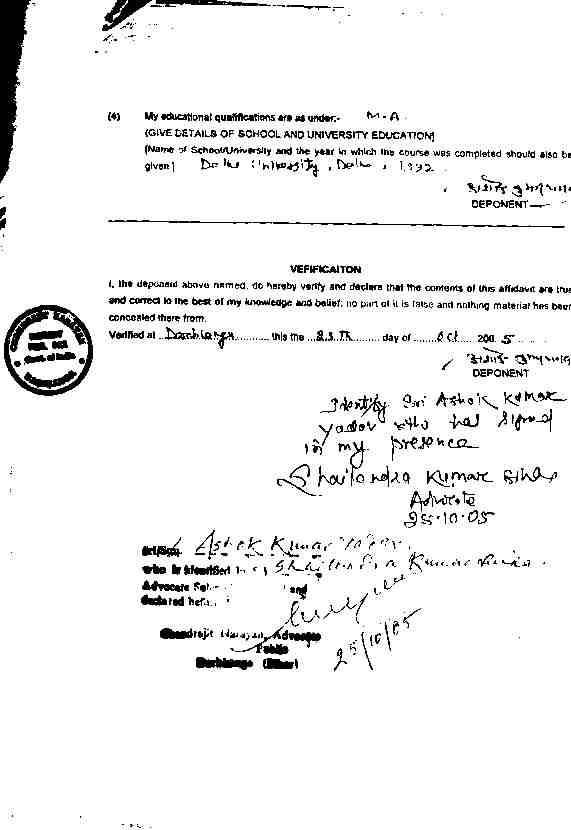 (4) My educational qualifications are as under:- M-A.
(GIVE DETAILS OF SCHOOL AND UNIVERSITY EDUCATION)
(Name of School/University and the year in which the course was completed should also be
given) Delhi University, Delhi, 1992.
DEPONENT
VEFIFICAITON
I, the deponent above named, do hereby verify and declare that the contents of this affidavit are true
and correct to the best of my knowledge and belief; no part of it is false and nothing material has been
concealed there from.
Verified at Darbhanga this the 25th day of Oct 200 5
DEPONENT
Identify Sri Ashok Kumar
Yadav who has signed
in my presence
Shailendra Kumar
Advocate
25.10.05
Ashok Kumar Yadav
who is identified Shailendra Kumar
Advocate and
declared
Chandrajit Narayan, Advocate
Public
Darbhanga (Bihar)
25/10/05